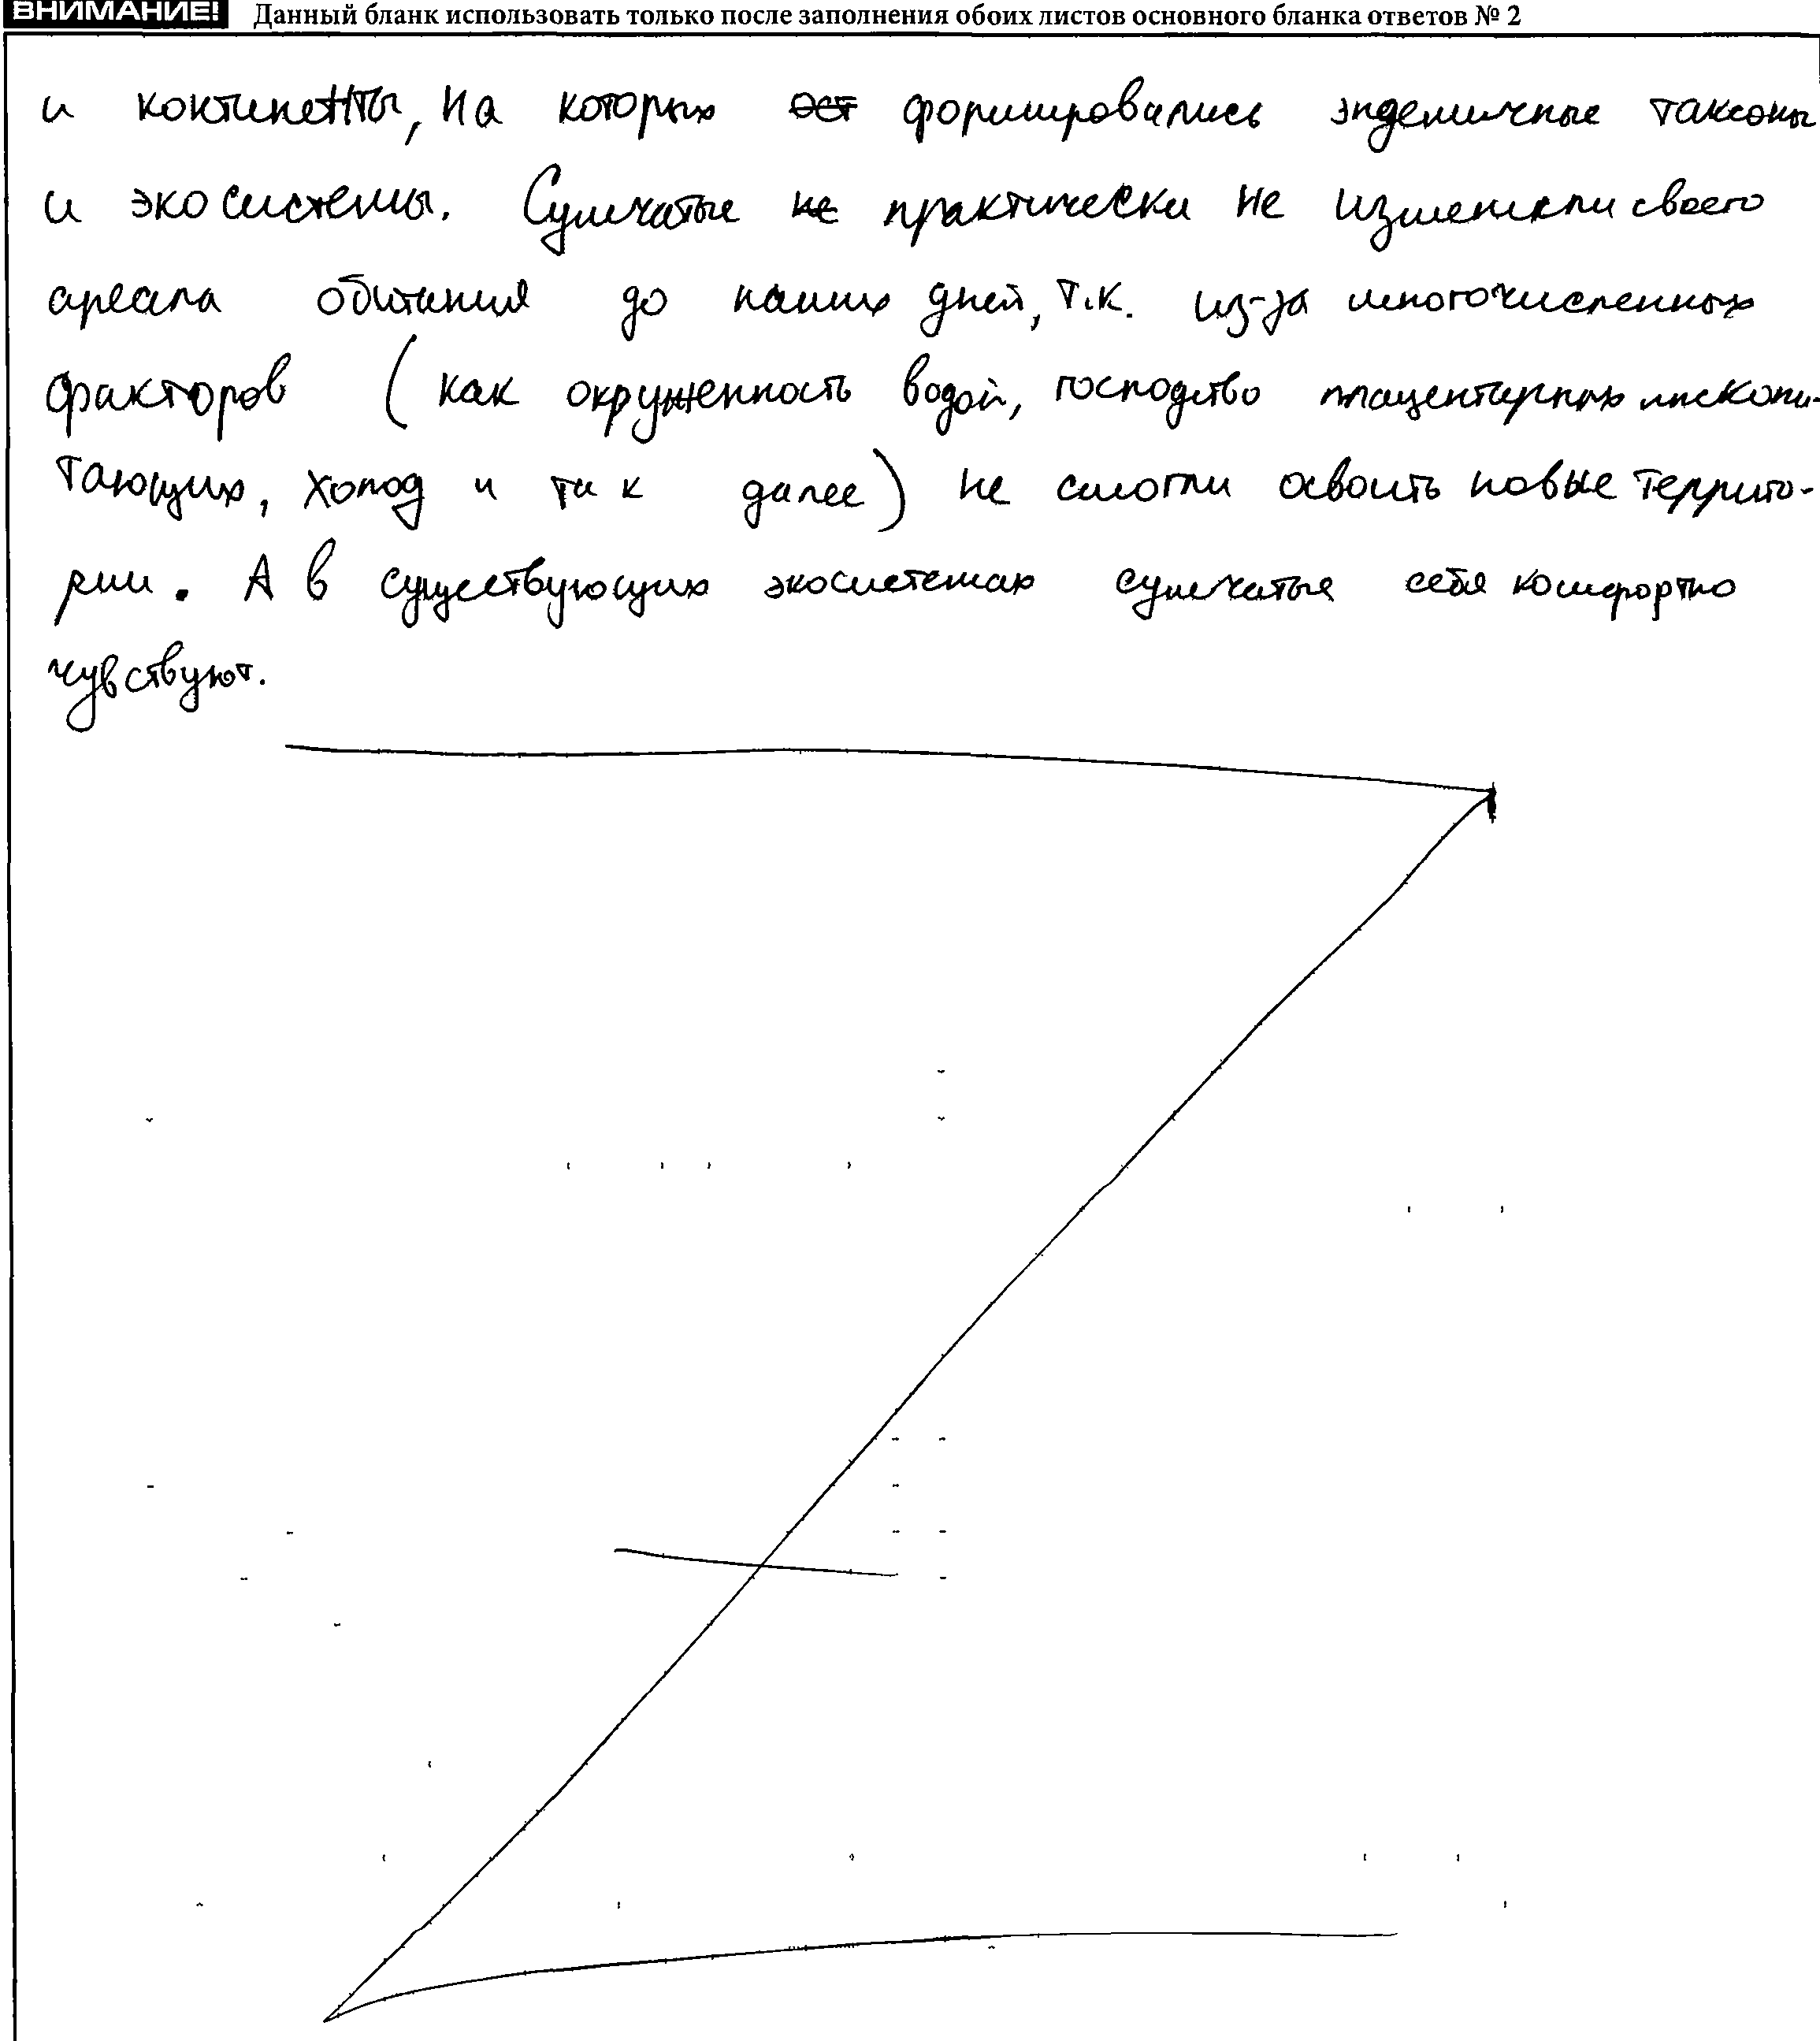 ВНИМАНИЕ! Данный бланк использовать только после заполнения обоих листов основного бланка ответов № 2
и континенты, на которых ост формировались эндемичные таксоны
и экосистемы. Сумчатые не практически не изменили своего
ареала обитания до наших дней, т.к. из-за многочисленных
факторов (как окруженность водой, господство плацентарных млекопи-
тающих, холод и так далее) не смогли освоить новые террито-
рии. А в существующих экосистемах сумчатые себя комфортно
чувствуют.